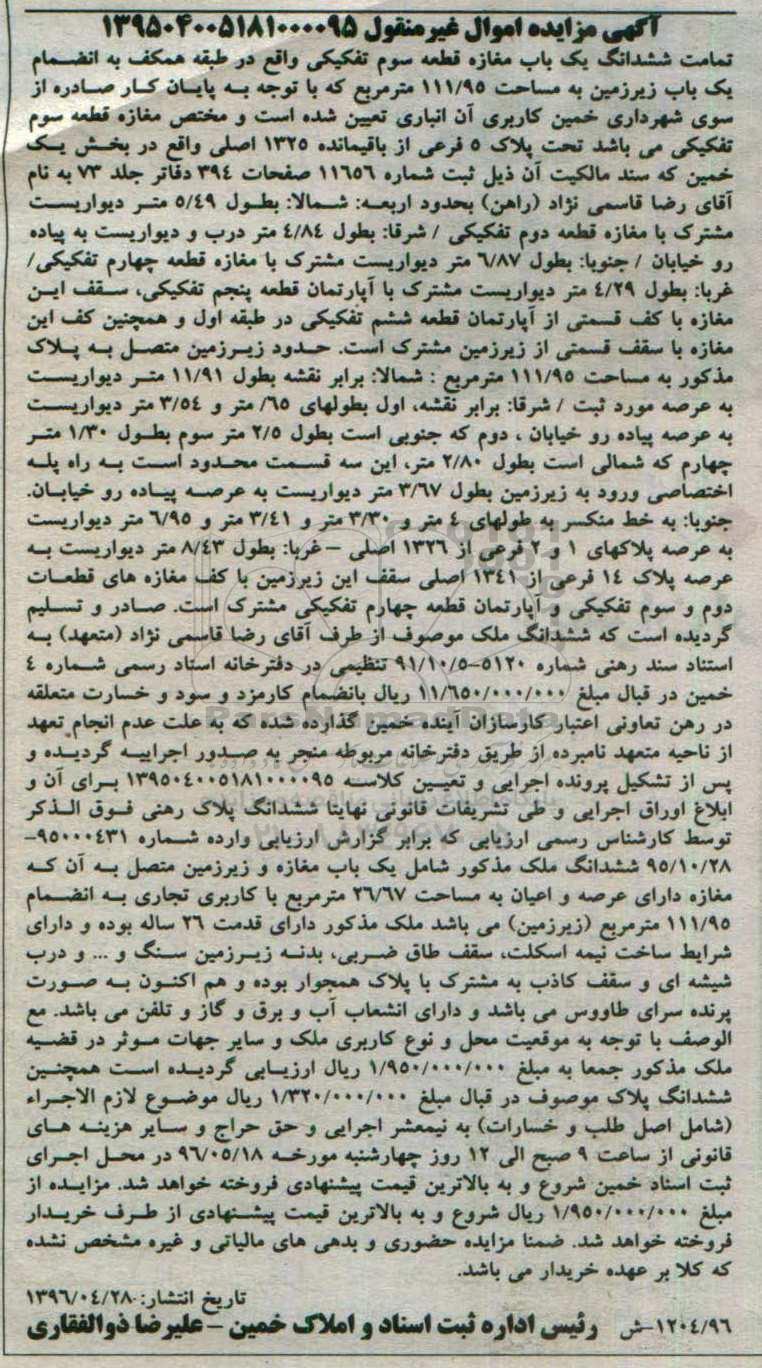 آگهی مزایده اموال غیرمنقول ۱۳۹۵۰۴۰۰۵۱۸۱۰۰۰۰۹۵
تمامت ششدانگ یک باب مغازه قطعه سوم تفکیکی واقع در طبقه همکف به انضمام
یک باب زیرزمین به مساحت ۱۱۱/۹۵ مترمربع که با توجه به پایان کار صادره از
سوی شهرداری خمین کاربری آن انباری تعیین شده است و مختص مغازه قطعه سوم
تفکیکی می باشد تحت پلاک ۵ فرعی از باقیمانده ۱۳۲۵ اصلی واقع در بخش یک
خمین که سند مالکیت آن ذیل ثبت شماره ۱۱۶۵۶ صفحات ۳۹۴ دفاتر جلد ۷۳ به نام
آقای رضا قاسمی نژاد (راهن) بحدود اربعه: شمالا: بطول ۵/۴۹ متر دیواریست
مشترک با مغازه قطعه دوم تفکیکی / شرقا: بطول ۴/۸۴ متر درب و دیواریست به پیاده
رو خیابان / جنوبا: بطول ۶/۸۷ متر دیواریست مشترک با مغازه قطعه چهارم تفکیکی/
غربا: بطول ۴/۲۹ متر دیواریست مشترک با آپارتمان قطعه پنجم تفکیکی، سقف این
مغازه با کف قسمتی از آپارتمان قطعه ششم تفکیکی در طبقه اول و همچنین کف این
مغازه با سقف قسمتی از زیرزمین مشترک است. حدود زیرزمین متصل به پلاک
مذکور به مساحت ۱۱۱/۹۵ مترمربع : شمالا: برابر نقشه بطول ۱۱/۹۱ متر دیواریست
به عرصه مورد ثبت / شرقا: برابر نقشه، اول بطولهای ۶۵/ متر و ۳/۵۴ متر دیواریست
به عرصه پیاده رو خیابان ، دوم که جنوبی است بطول ۲/۵ متر سوم بطول ۱/۳۰ متر
چهارم که شمالی است بطول ۲/۸۰ متر، این سه قسمت محدود است به راه پله
اختصاصی ورود به زیرزمین بطول ۳/۶۷ متر دیواریست به عرصه پیاده رو خیابان.
جنوبا: به خط منکسر به طولهای ٤ متر و ۳/۳۰ متر و ۳/۴۱ متر و ۶/۹۵ متر دیواریست
به عرصه پلاکهای ۱ و ۲ فرعی از ۱۳۲۶ اصلی – غربا: بطول ۸/۴۳ متر دیواریست به
عرصه پلاک ۱۴ فرعی از ۱۳۴۱ اصلی سقف این زیرزمین با کف مغازه های قطعات
دوم و سوم تفکیکی و آپارتمان قطعه چهارم تفکیکی مشترک است. صادر و تسلیم
گردیده است که ششدانگ ملک موصوف از طرف آقای رضا قاسمی نژاد (متعهد) به
استناد سند رهنی شماره ۵۱۲۰-۹۱/۱۰/۵ تنظیمی در دفترخانه اسناد رسمی شماره ٤
خمین در قبال مبلغ ۱۱/۶۵۰/۰۰۰/۰۰۰ ریال بانضمام کارمزد و سود و خسارت متعلقه
در رهن تعاونی اعتبار کارسازان آینده خمین گذارده شده که به علت عدم انجام تعهد
از ناحیه متعهد نامبرده از طریق دفترخانه مربوطه منجر به صدور اجراییه گردیده و
پس از تشکیل پرونده اجرایی و تعیین کلاسه ۱۳۹۵۰۴۰۰۵۱۸۱۰۰۰۰۹۵ برای آن و
ابلاغ اوراق اجرایی و طی تشریفات قانونی نهایتا ششدانگ پلاک رهنی فوق الذکر
توسط کارشناس رسمی ارزیابی که برابر گزارش ارزیابی وارده شماره ۹۵۰۰۰۴۳۱-
۹۵/۱۰/۲۸ ششدانگ ملک مذکور شامل یک باب مغازه و زیرزمین متصل به آن که
مغازه دارای عرصه و اعیان به مساحت ۲۶/۶۷ مترمربع با کاربری تجاری به انضمام
۱۱۱/۹۵ مترمربع (زیرزمین) می باشد ملک مذکور دارای قدمت ۲۶ ساله بوده و دارای
شرایط ساخت نیمه اسکلت، سقف طاق ضربی، بدنه زیرزمین سنگ و ... و درب
شیشه ای و سقف کاذب به مشترک با پلاک همجوار بوده و هم اکنون به صورت
پرنده سرای طاووس می باشد و دارای انشعاب آب و برق و گاز و تلفن می باشد. مع
الوصف با توجه به موقعیت محل و نوع کاربری ملک و سایر جهات موثر در قضیه
ملک مذکور جمعا به مبلغ ۱/۹۵۰/۰۰۰/۰۰۰ ریال ارزیابی گردیده است همچنین
ششدانگ پلاک موصوف در قبال مبلغ ۱/۳۲۰/۰۰۰/۰۰۰ ریال موضوع لازم الاجراء
(شامل اصل طلب و خسارات) به نیمعشر اجرایی و حق حراج و سایر هزینه های
قانونی از ساعت ۹ صبح الی ۱۲ روز چهارشنبه مورخه ۹۶/۰۵/۱۸ در محل اجرای
ثبت اسناد خمین شروع و به بالاترین قیمت پیشنهادی فروخته خواهد شد. مزایده از
مبلغ ۱/۹۵۰/۰۰۰/۰۰۰ ریال شروع و به بالاترین قیمت پیشنهادی از طرف خریدار
فروخته خواهد شد. ضمنا مزایده حضوری و بدهی های مالیاتی و غیره مشخص نشده
که کلا بر عهده خریدار می باشد.
تاریخ انتشار: ۱۳۹۶/۰۴/۲۸
۱۲۰۴/۹۶-ش رئیس اداره ثبت اسناد و املاک خمین – علیرضا ذوالفقاری